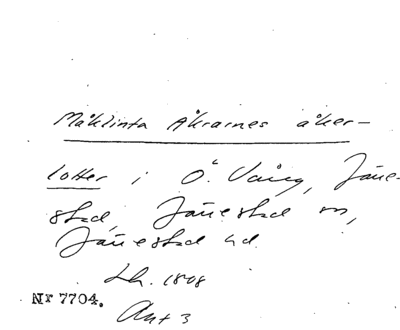 Måklinta Åkrarnes åker-
lotter i Ö. Vång, Järre-
stad, Järrestad sn,
Järrestad hd.
Lh. 1808
Nr 7704.
Akt 3